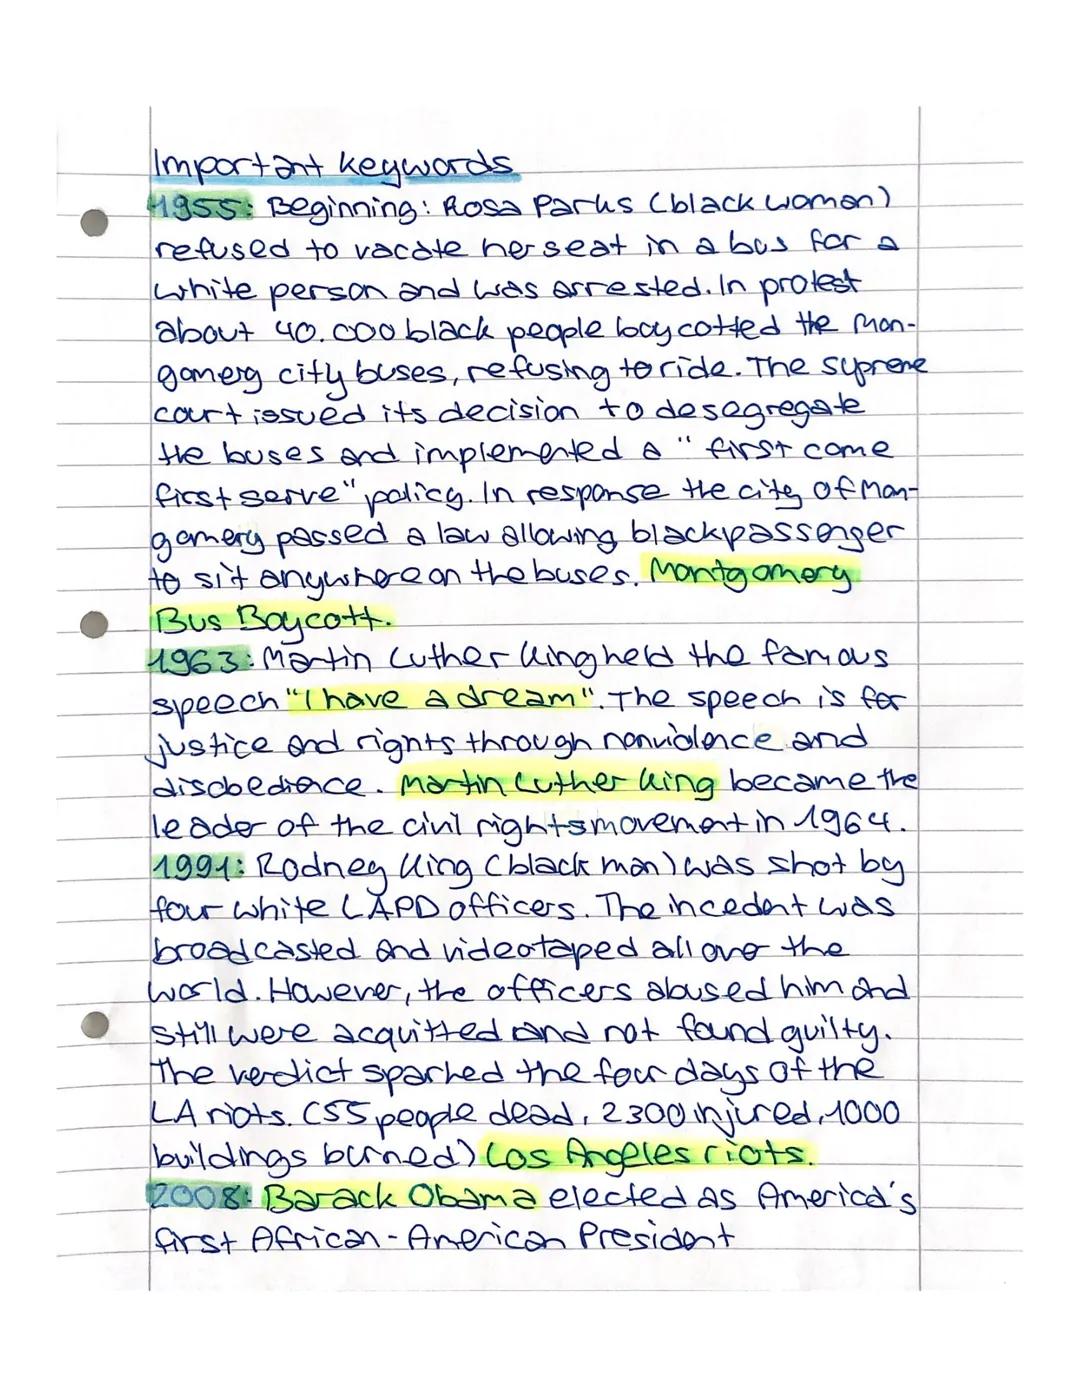 Important keywords
1955: Beginning: Rosa Parks (black woman)
refused to vacate her seat in a bus for a
white person and was arrested. In protest
about 40.000 black people boycotted the Mon-
gomery city buses, refusing to ride. The supreme
court issued its decision to desegregate
the buses and implemented a "first come
first serve" policy. In response the city of Mon-
gomery passed a law allowing black passenger
to sit anywhere on the buses. Montgomery
Bus Boycott.
1963: Martin Luther King held the famous
speech "I have a dream". The speech is for
justice and rights through nonviolence and
disobedience. Martin Luther King became the
leader of the civil rights movement in 1964.
1991: Rodney King (black man) was shot by
four white LAPD officers. The incedent was
broadcasted and videotaped all over the
world. However, the officers abused him and
still were acquitted and not found guilty.
The verdict sparked the four days of the
LA riots. (55 people dead, 2300 injured, 1000
buildings burned) Los Angeles riots.
2008: Barack Obama elected as America's
first African-American President